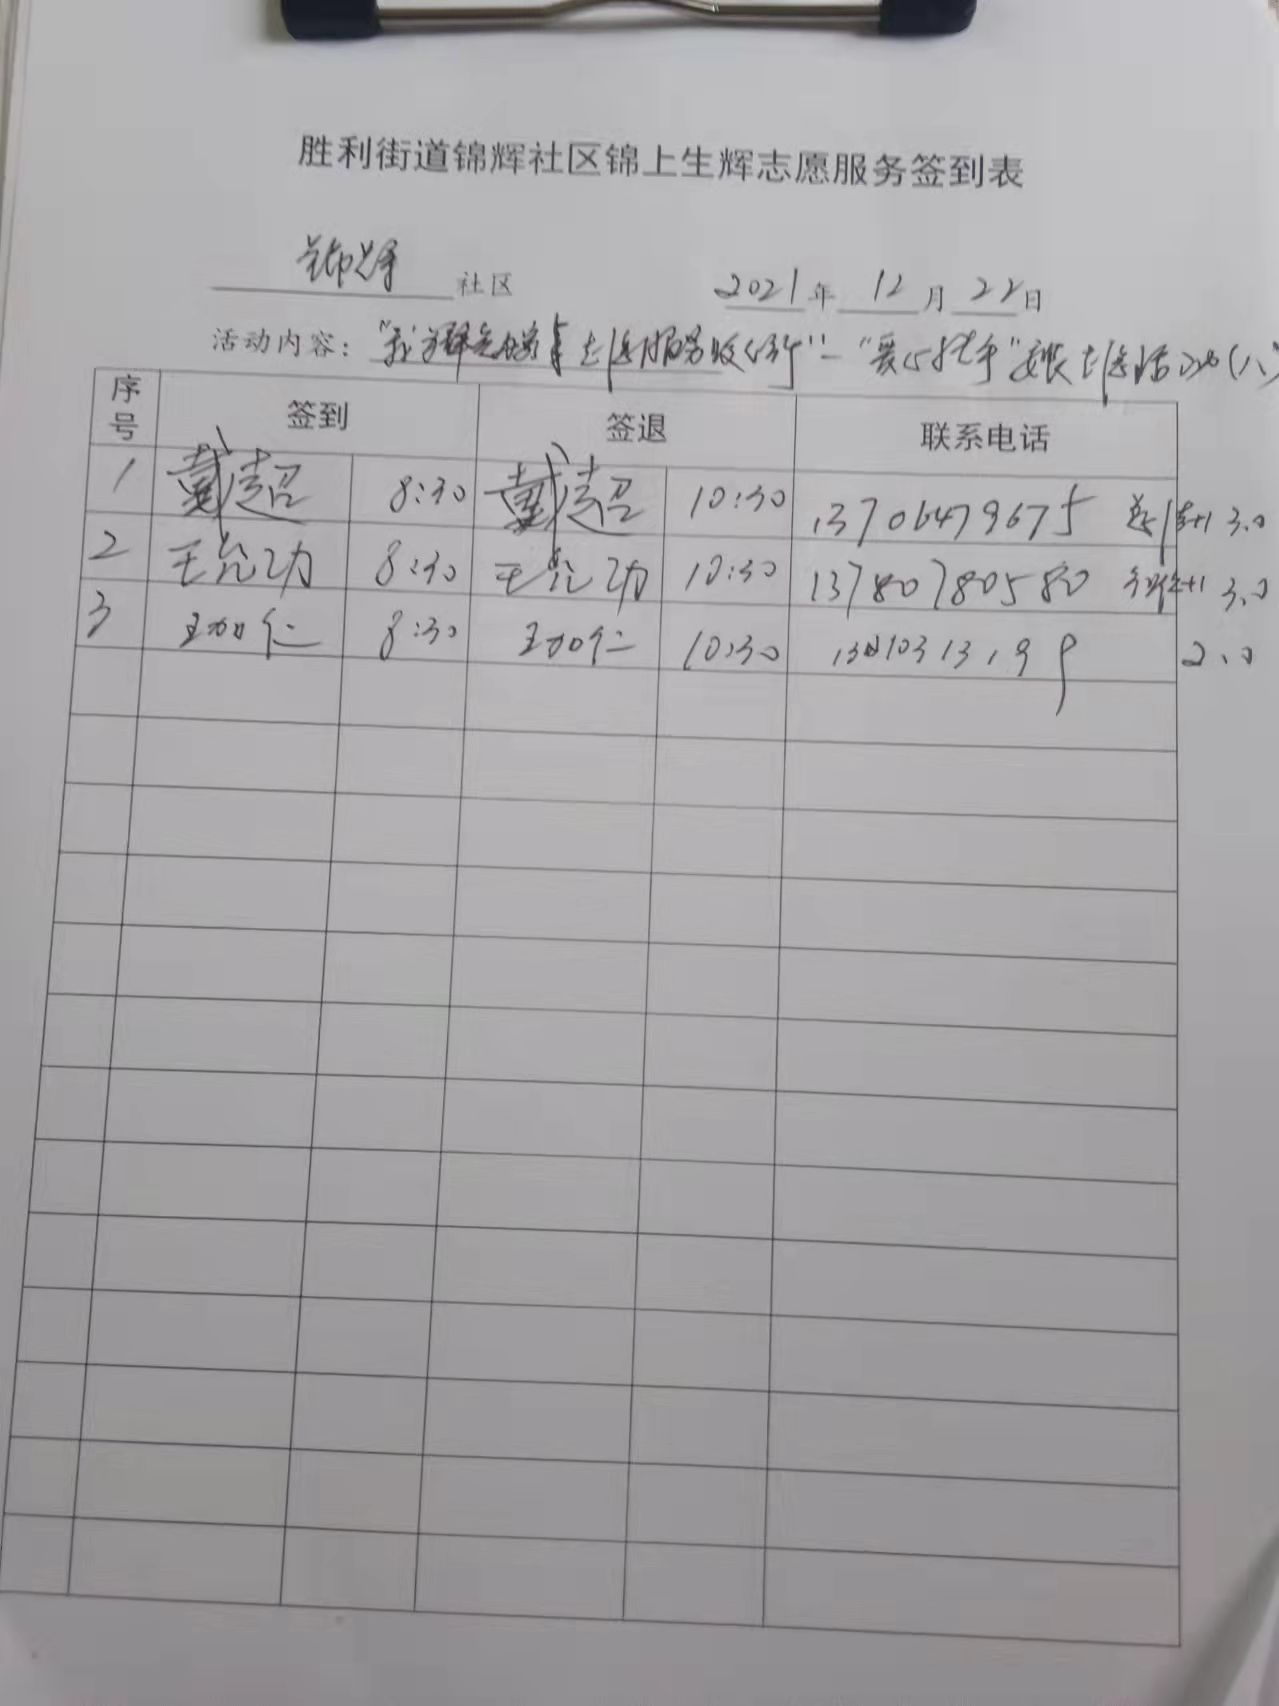 胜利街道锦辉社区锦上生辉志愿服务签到表
锦辉 社区 2021年 12月 22日
活动内容： "我 志愿服务 "—"爱心 " 志愿活动(八)
序号 签到 签退 联系电话
1 戴超 8:30 戴超 10:30 13706479675 +1 3.0
2 王允功 8:30 王允功 10:30 13780780580 +1 3.0
3 王加仁 8:30 王加仁 10:30 2.0